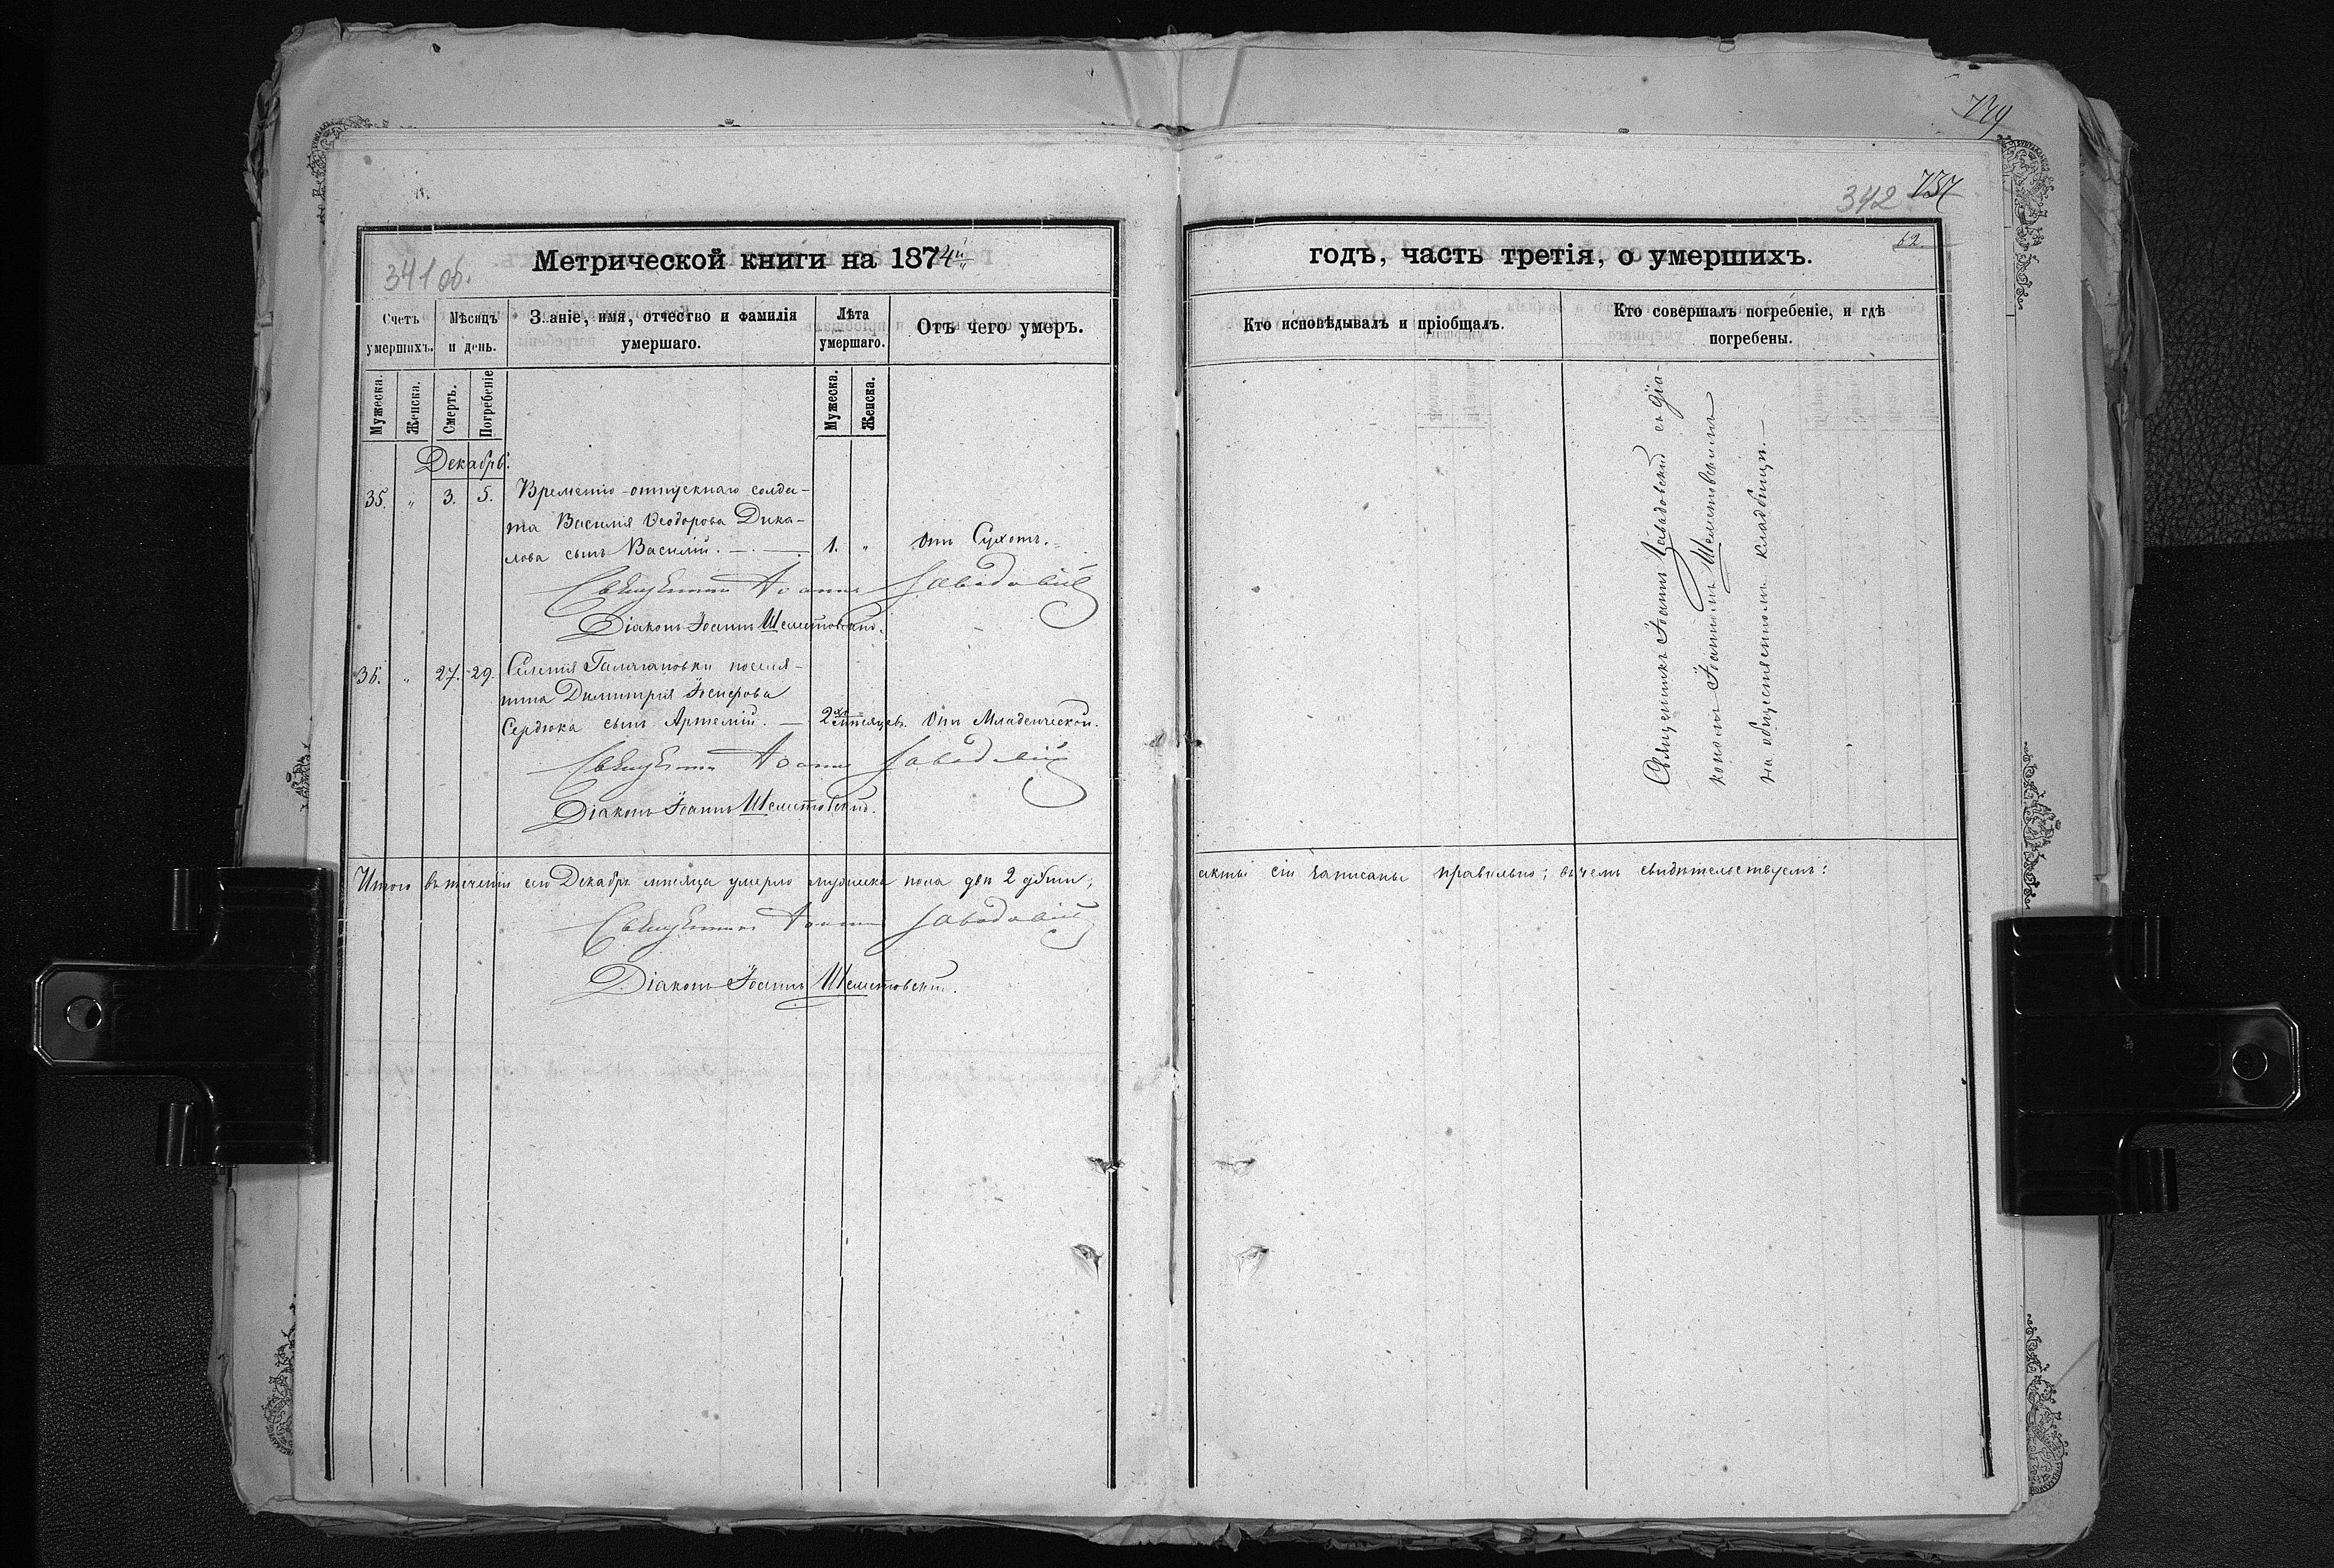 739
737
342
62.
341 об.
Метрической книги на 1874й
годъ, часть третія, о умершихъ.
Счетъ умершихъ.
Мѣсяцъ и день.
Званіе, имя, отчество и фамилія умершаго.
Лѣта умершаго.
Отъ чего умеръ.
Кто исповѣдывалъ и пріобщалъ.
Кто совершалъ погребеніе, и гдѣ погребены.
Мужеска.
Женска.
Смерть.
Погребеніе
Мужеска.
Женска.
Декабрь.
35. „ 3. 5. Временно-отпускнаго солда-
та Василія Ѳеодорова Дика-
лова сынъ Василій. — 1. „ Отъ Сухотъ.
Священникъ Іоаннъ Завадовскій
Діаконъ Іоаннъ Шеметовскій.
36. „ 27. 29. Селенія Галагановки поселя-
нина Димитрія Іосифова
Сердюка сынъ Артемій. — 2хъ мѣсяцевъ. Отъ Младенческой.
Священникъ Іоаннъ Завадовскій
Діаконъ Іоаннъ Шеметовскій.
Священникъ Іоаннъ Завадовскій съ діа-
кономъ Іоанномъ Шеметовскимъ
на общественномъ кладбищѣ.—
Итого въ теченіи сего Декабрь мѣсяца умерло мужеска пола двѣ 2 души; акты сіи записаны правильно; въ чемъ свидѣтельствуемъ:
Священникъ Іоаннъ Завадовскій
Діаконъ Іоаннъ Шеметовскій.